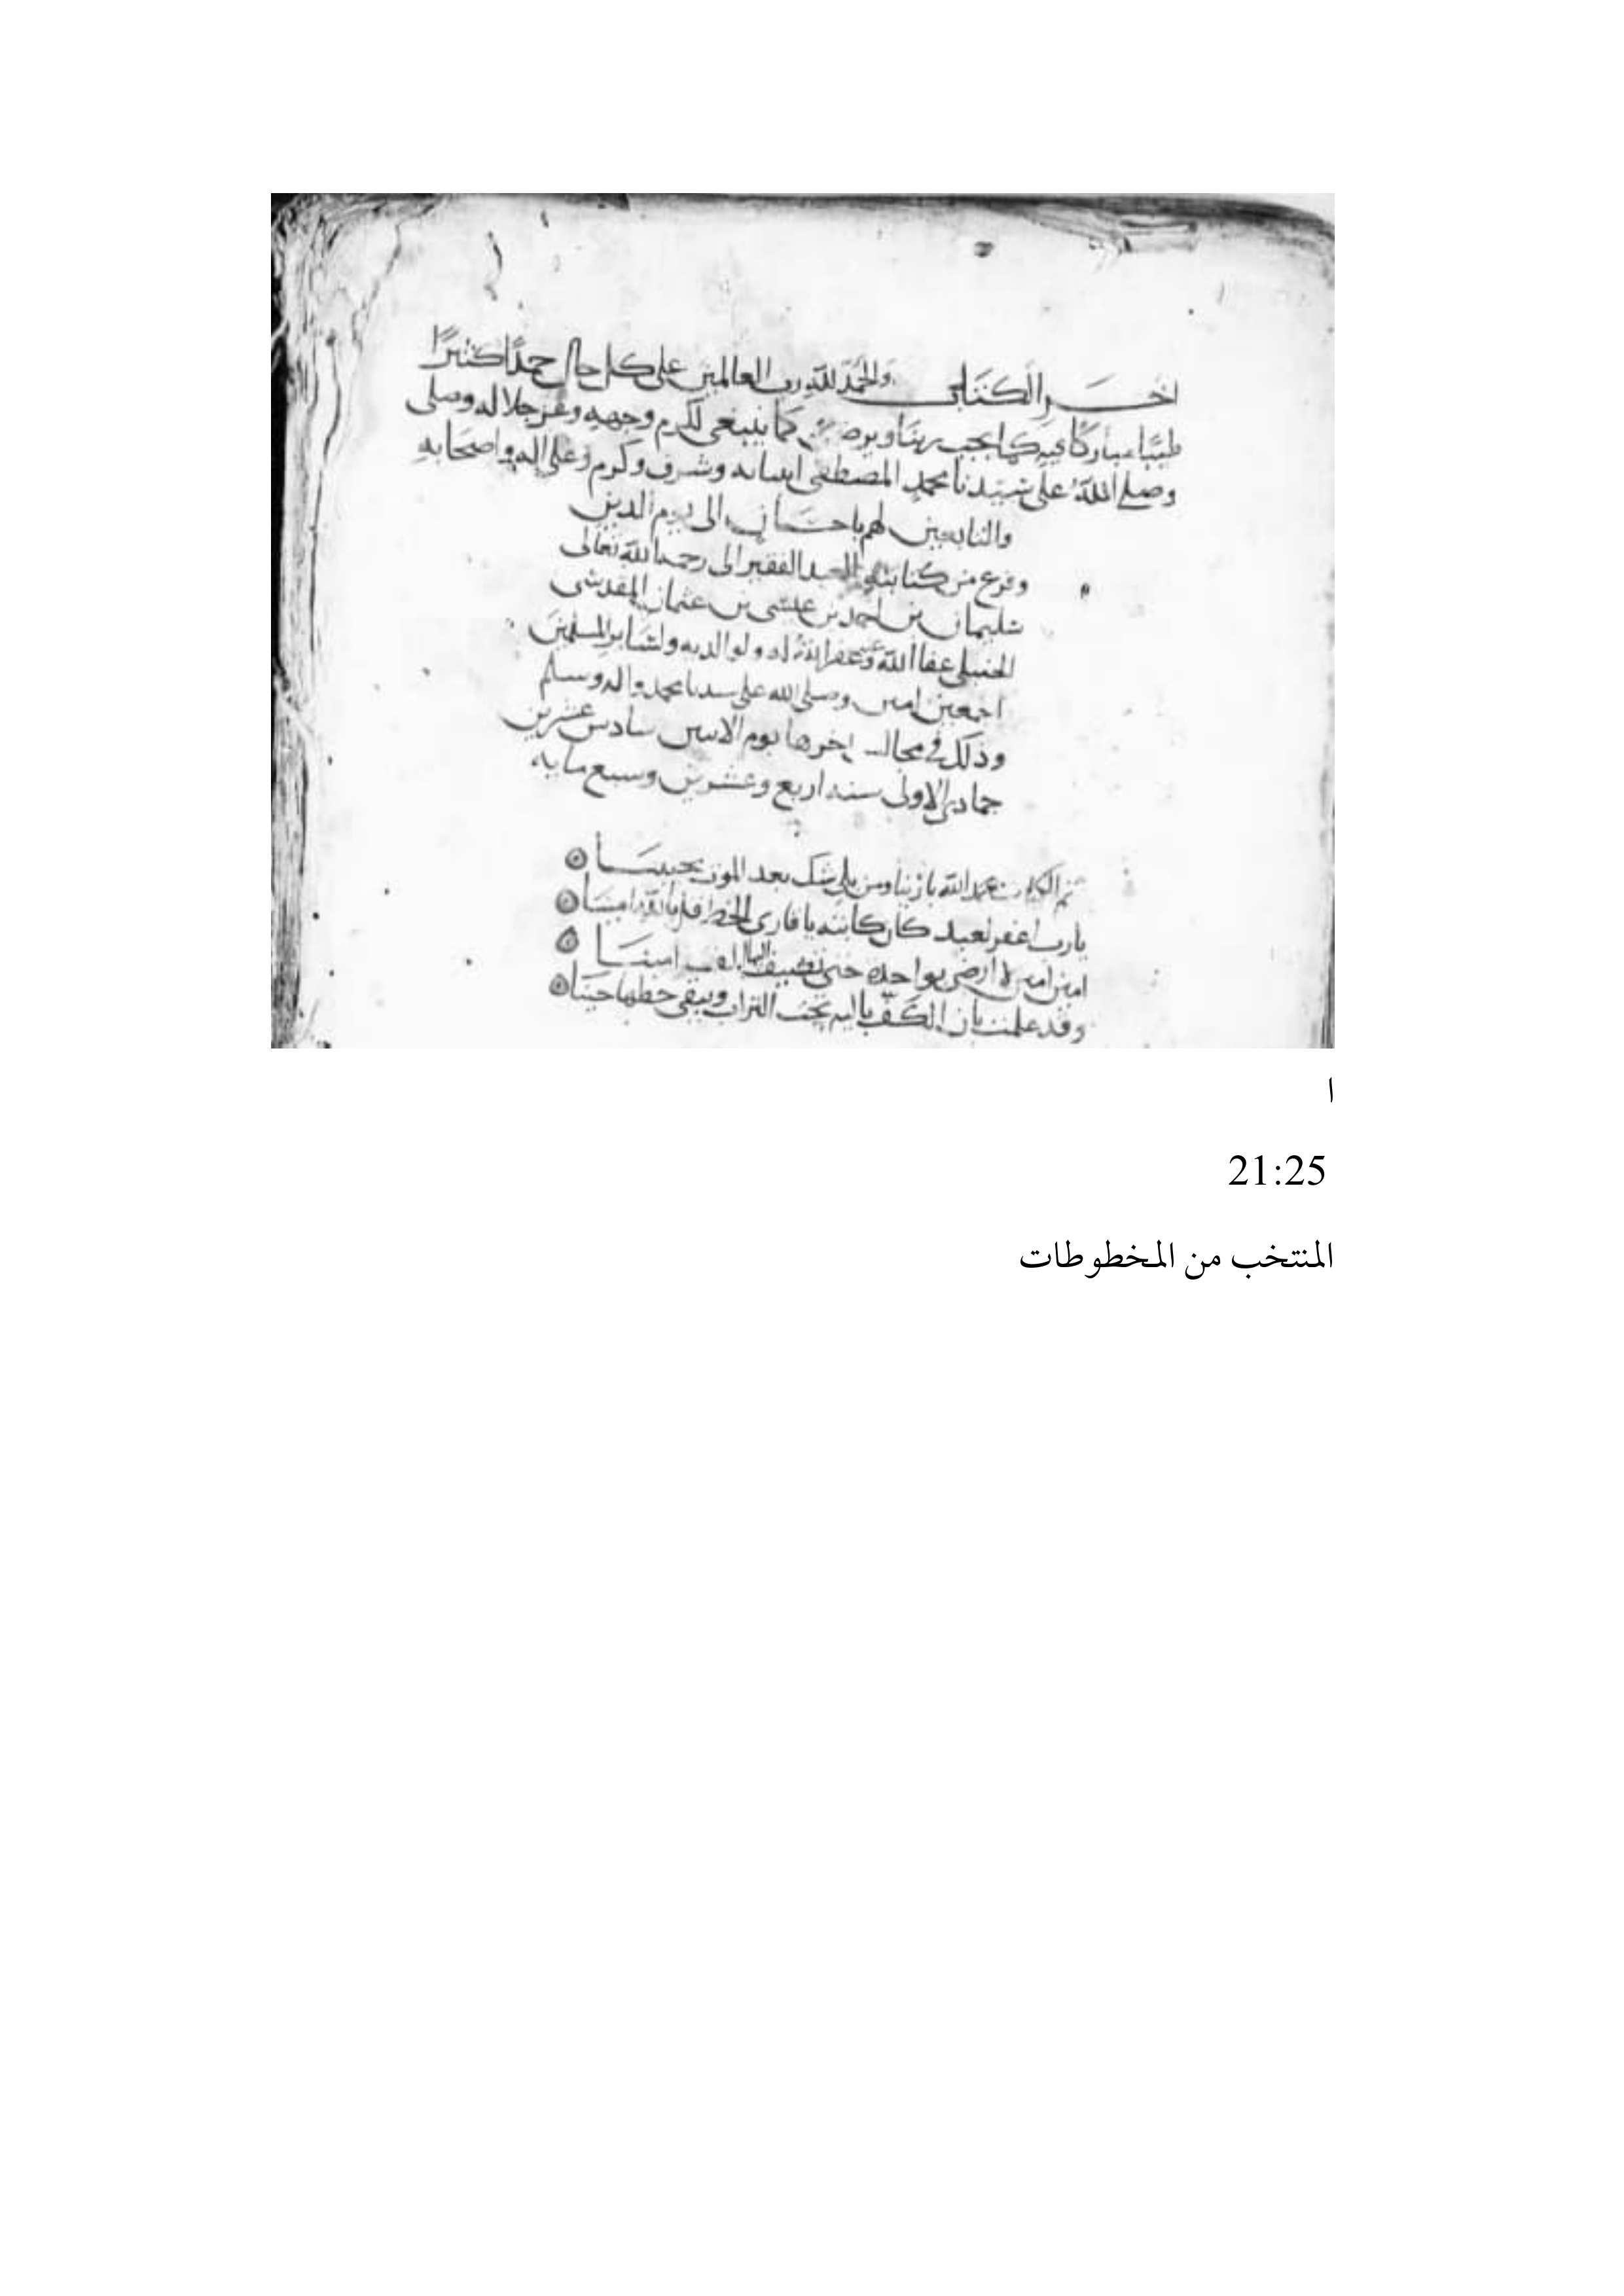 اخر الكتاب والحمد لله رب العالمين على كل حال حمدا كثيرا
طيبا مباركا فيه كما يحب ربنا ويرضى كما ينبغي لكرم وجهه وعز جلاله وصلى
وصلى الله على سيدنا محمد المصطفى وشرف وكرم وعلى اله واصحابه
والتابعين لهم باحسان الى يوم الدين
وفرغ من كتابته العبد الفقير الى رحمة الله تعالى
سليمان بن احمد بن عيسى بن عثمان المقدسي
الحنبلي عفا الله عنه وغفر الله له ولوالديه ولسائر المسلمين
اجمعين امين وصلى الله على سيدنا محمد واله وسلم
وذلك في مجالس اخرها يوم الاثنين سادس عشرين
جمادى الاولى سنه اربع وعشرين وسبع مايه
تم الكتاب بحمد الله بارينا ومن بلى شك بعد الموت يحيينا
يارب اغفر لعبد كان كاتبه يا قارى الخط قل بالله امينا
امين امين لا ارضى بواحدة حتى نضيف اليها الف امينا
وقد علمت بان الكف باليه تحت التراب ويبقى خطها حينا
ا
21:25
المنتخب من المخطوطات